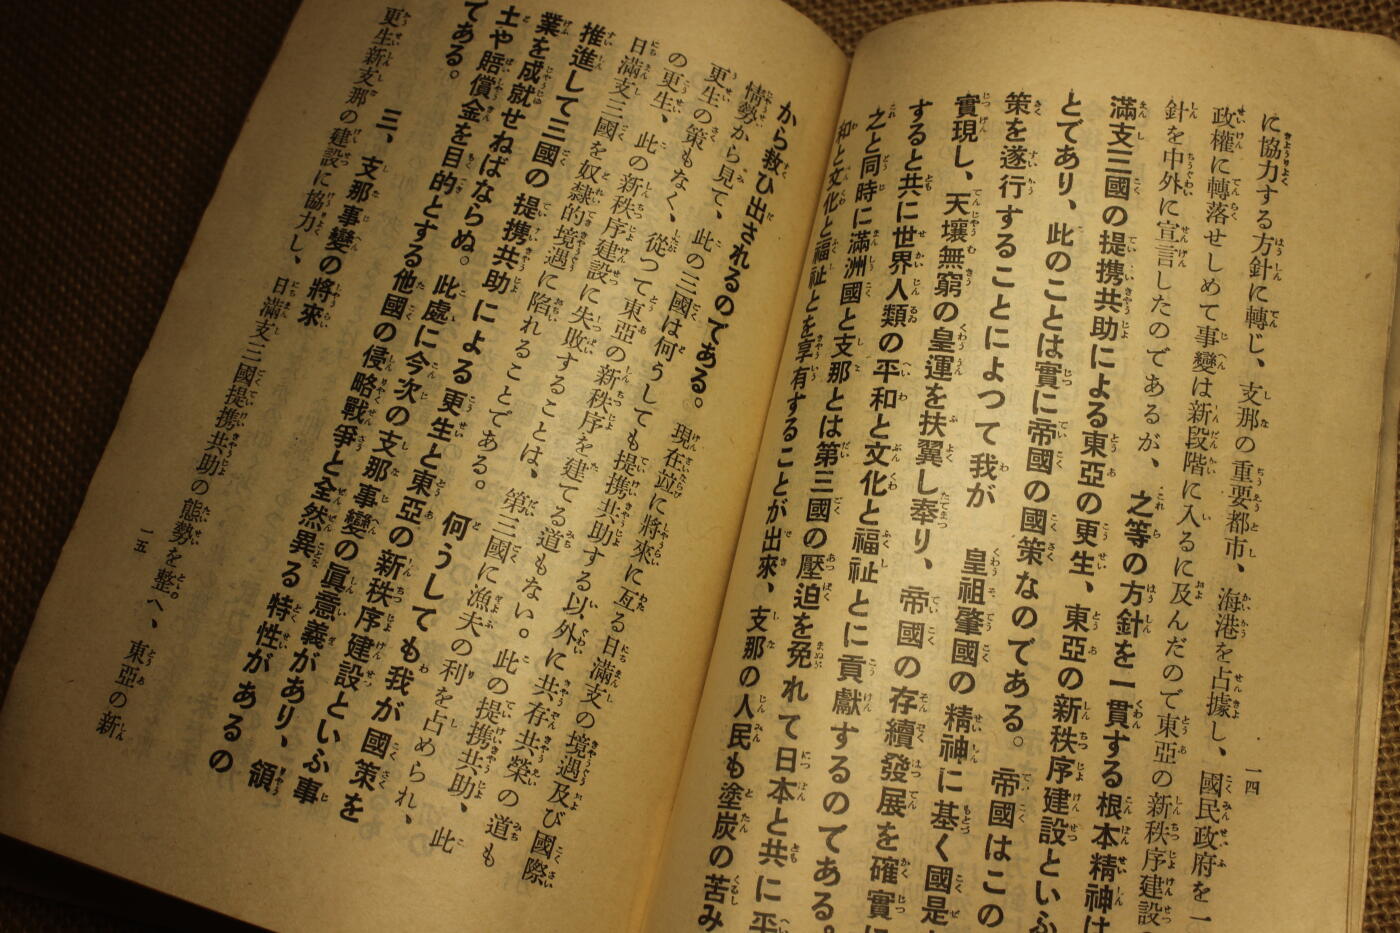 一四
に協力する方針に轉じ、支那の重要都市、海港を占據し、國民政府を一
政權に轉落せしめて事變は新段階に入るに及んだので東亞の新秩序建設の
針を中外に宣言したのであるが、之等の方針を一貫する根本精神は
滿支三國の提携共助による東亞の更生、東亞の新秩序建設といふ
とであり、此のことは實に帝國の國策なのである。帝國はこの
策を遂行することによつて我が 皇祖肇國の精神に基く國是
實現し、天壤無窮の皇運を扶翼し奉り、帝國の存續發展を確實に
すると共に世界人類の平和と文化と福祉とに貢獻するのである。
之と同時に滿洲國と支那とは第三國の壓迫を免れて日本と共に平
和と文化と福祉とを享有することが出來、支那の人民も塗炭の苦み
から救ひ出されるのである。現在竝に將來に亙る日滿支の境遇及び國際
情勢から見て、此の三國は何うしても提携共助する以外に共存共榮の道も
更生の策もなく、從つて東亞の新秩序を建てる道もない。此の提携共助、此
の更生、此の新秩序建設に失敗することは、第三國に漁夫の利を占められ、
日滿支三國を奴隷的境遇に陷れることである。何うしても我が國策を
推進して三國の提携共助による更生と東亞の新秩序建設といふ事
業を成就せねばならぬ。此處に今次の支那事變の眞意義があり、領
土や賠償金を目的とする他國の侵略戰爭と全然異る特性があるの
てある。
三、支那事變の將來
更生新支那の建設に協力し、日滿支三國提携共助の態勢を整へ、東亞の新
一五